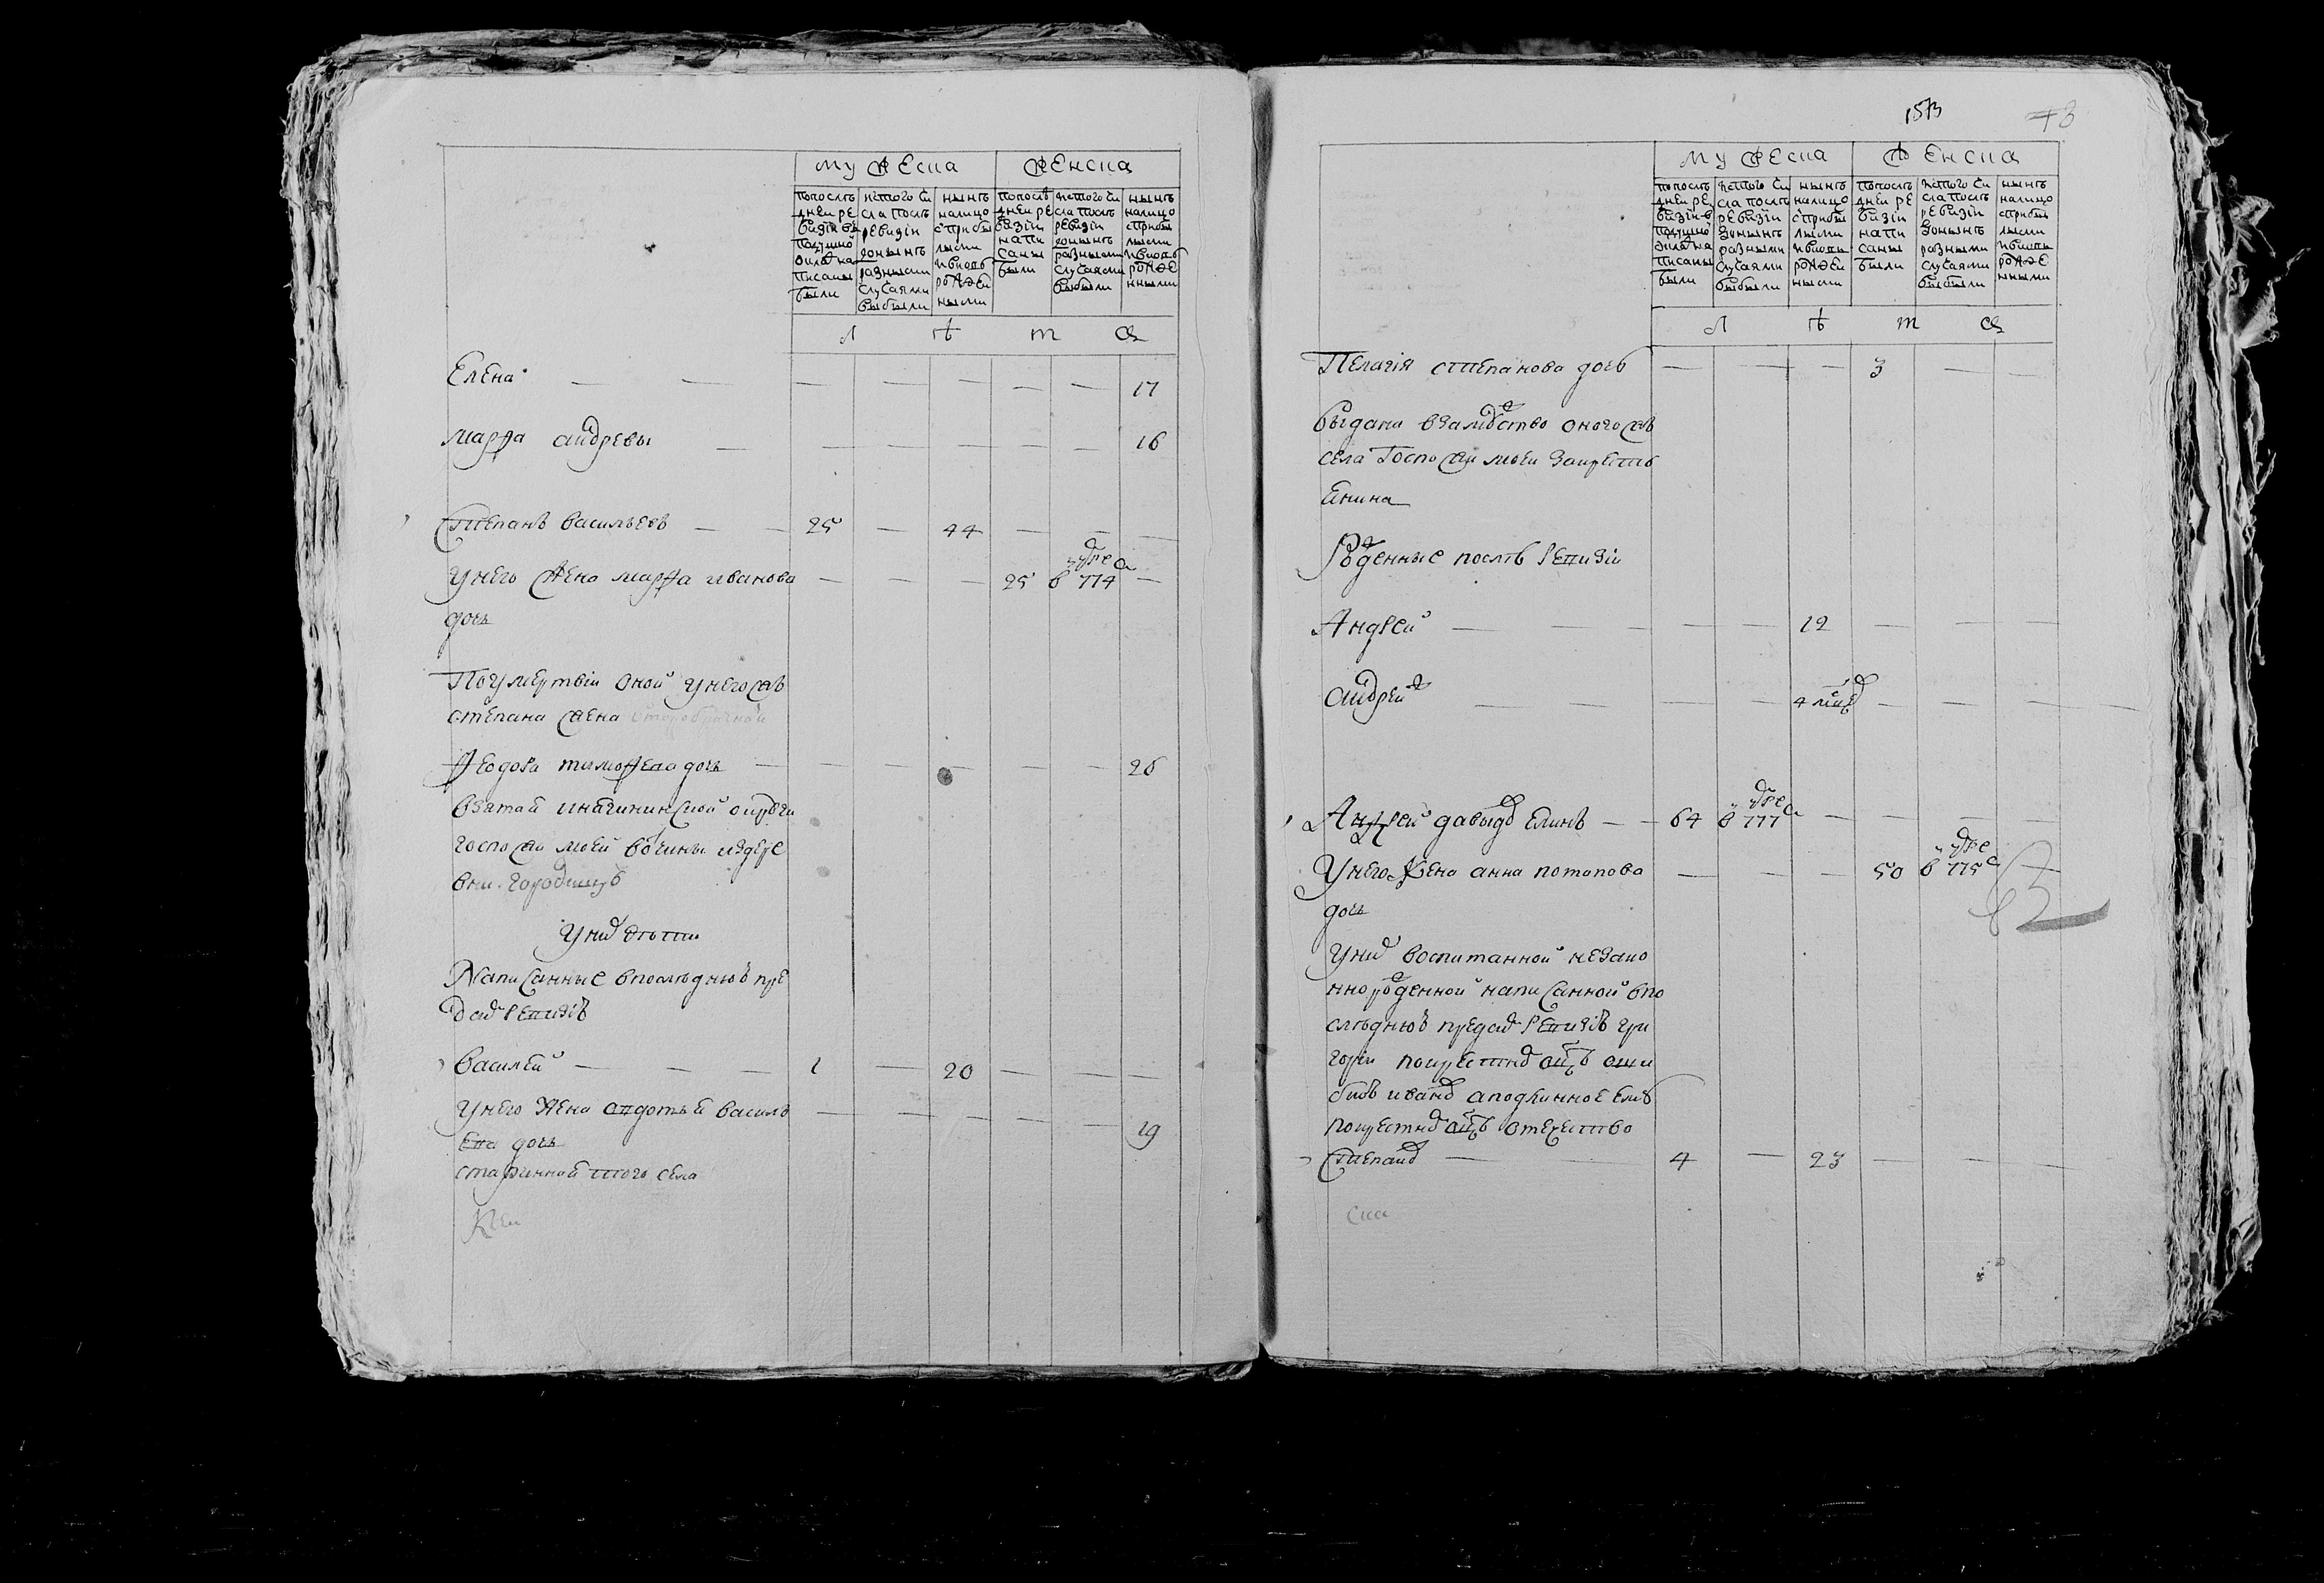 мужеска женска
попослѣ
дней ре
визіи въ
подушно
окладъ на
писаны
были
ис того чи
сла послѣ
ревизіи
до нынѣ
разными
случаями
выбыли
нынѣ
на лицо
с прибы
лыми
и вновь
рожден
ными
попослѣ
дней ре
визіи
напи
саны
были
ис того чи
сла послѣ
ревизіи
до нынѣ
разными
случаями
выбыли
нынѣ
на лицо
с прибы
лыми
и вновь
рожде
нными
л ѣ т а
Елена — — — — — — — 17
марѳа андревы — — — — — — 16
Степанъ васильевъ — — 25 — 44 — — —
у него жена марѳа иванова — — — 25 в 774 —
дочь
По умертвіи оной у него жъ
степана жена второбрачная
Ѳедора тимоѳева дочь — — — — — — 26
взятая
господ моей вотчины из дере
вни
у них дѣти
Написанные в последнюю пре
д сим ревизію
Василей — — — 1 — 20 — — —
у него жена авдотья василь — — — — — 19
ева дочь
старинная того села
1573 78
мужеска женска
попослѣ
дней ре
визіи в
подушно
окладъ на
писаны
были
ис того чи
сла послѣ
ревизіи
до нынѣ
разными
случаями
выбыли
нынѣ
на лицо
с прибы
лыми
и вновь
рожден
ными
попослѣ
дней ре
визіи
напи
саны
были
ис того чи
сла послѣ
ревизіи
до нынѣ
разными
случаями
выбыли
нынѣ
на лицо
с прибы
лыми
и вновь
рожде
нными
л ѣ т а
Пелагія степанова дочь — — — 3 — —
выдана в замужство оного жъ
села господ моей за крестья
нина
Рожденные послѣ ревизіи
Андрей — — — — 12 — — —
андрей — — — — 4 мѣс — — —
Андрей давыдъ — — 64 в 777 — — — —
у него жена анна потапова — — — 50 в 775 —
дочь
у них воспитанной незако
ннорожденной написанной в по
следнюю пред сим ревизію гри
горіи по крестному отцу оши
бкою иванъ а подлинное ему
по крестному отцу отечество
Степанъ — — 4 — 23 — — —